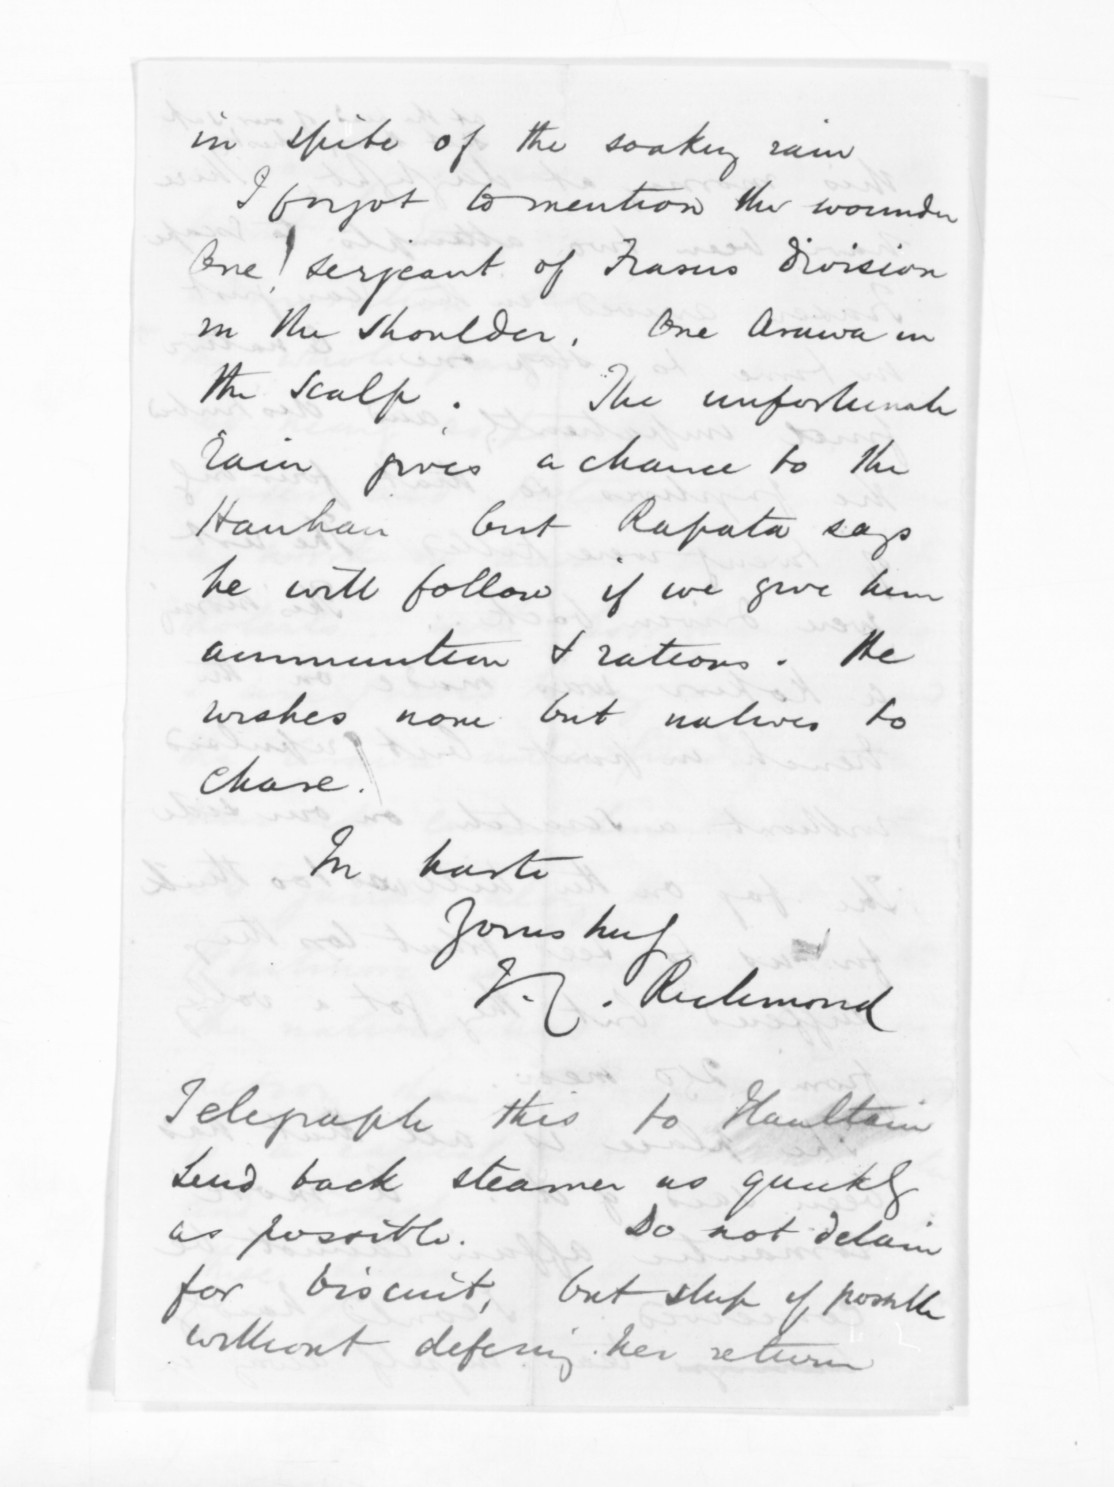 in spite of the soaking rain
I forgot to mention the wounded
One! serjeant of Frasers division
in the shoulder. One Arawa in
the scalp. The unfortunate
rain gives a chance to the
Hauhau but Rapata says
he will follow if we give him
ammunition & rations. He
wishes none but natives to
chase!
In haste
Yours truly
J.C. Richmond
Telegraph this to Haultain
Send back steamer as quickly
as possible. Do not detain
for biscuit, but ship if possible
without defering her return